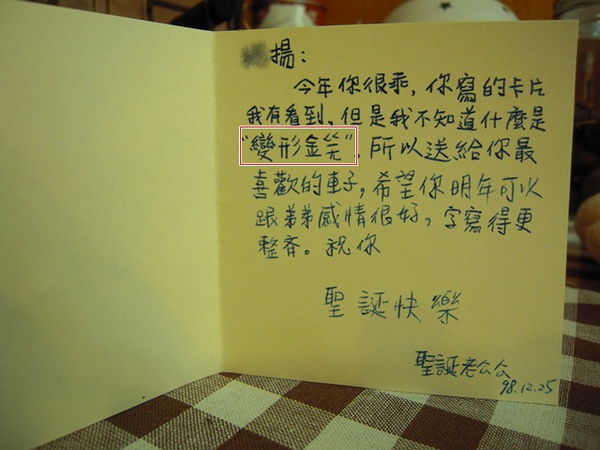 揚：
今年你很乖，你寫的卡片
我有看到，但是我不知道什麼是
“變形金笂”，所以送給你最
喜歡的車子，希望你明年可以
跟弟弟感情很好，字寫得更
整齊。祝你
聖誕快樂
聖誕老公公
98.12.25